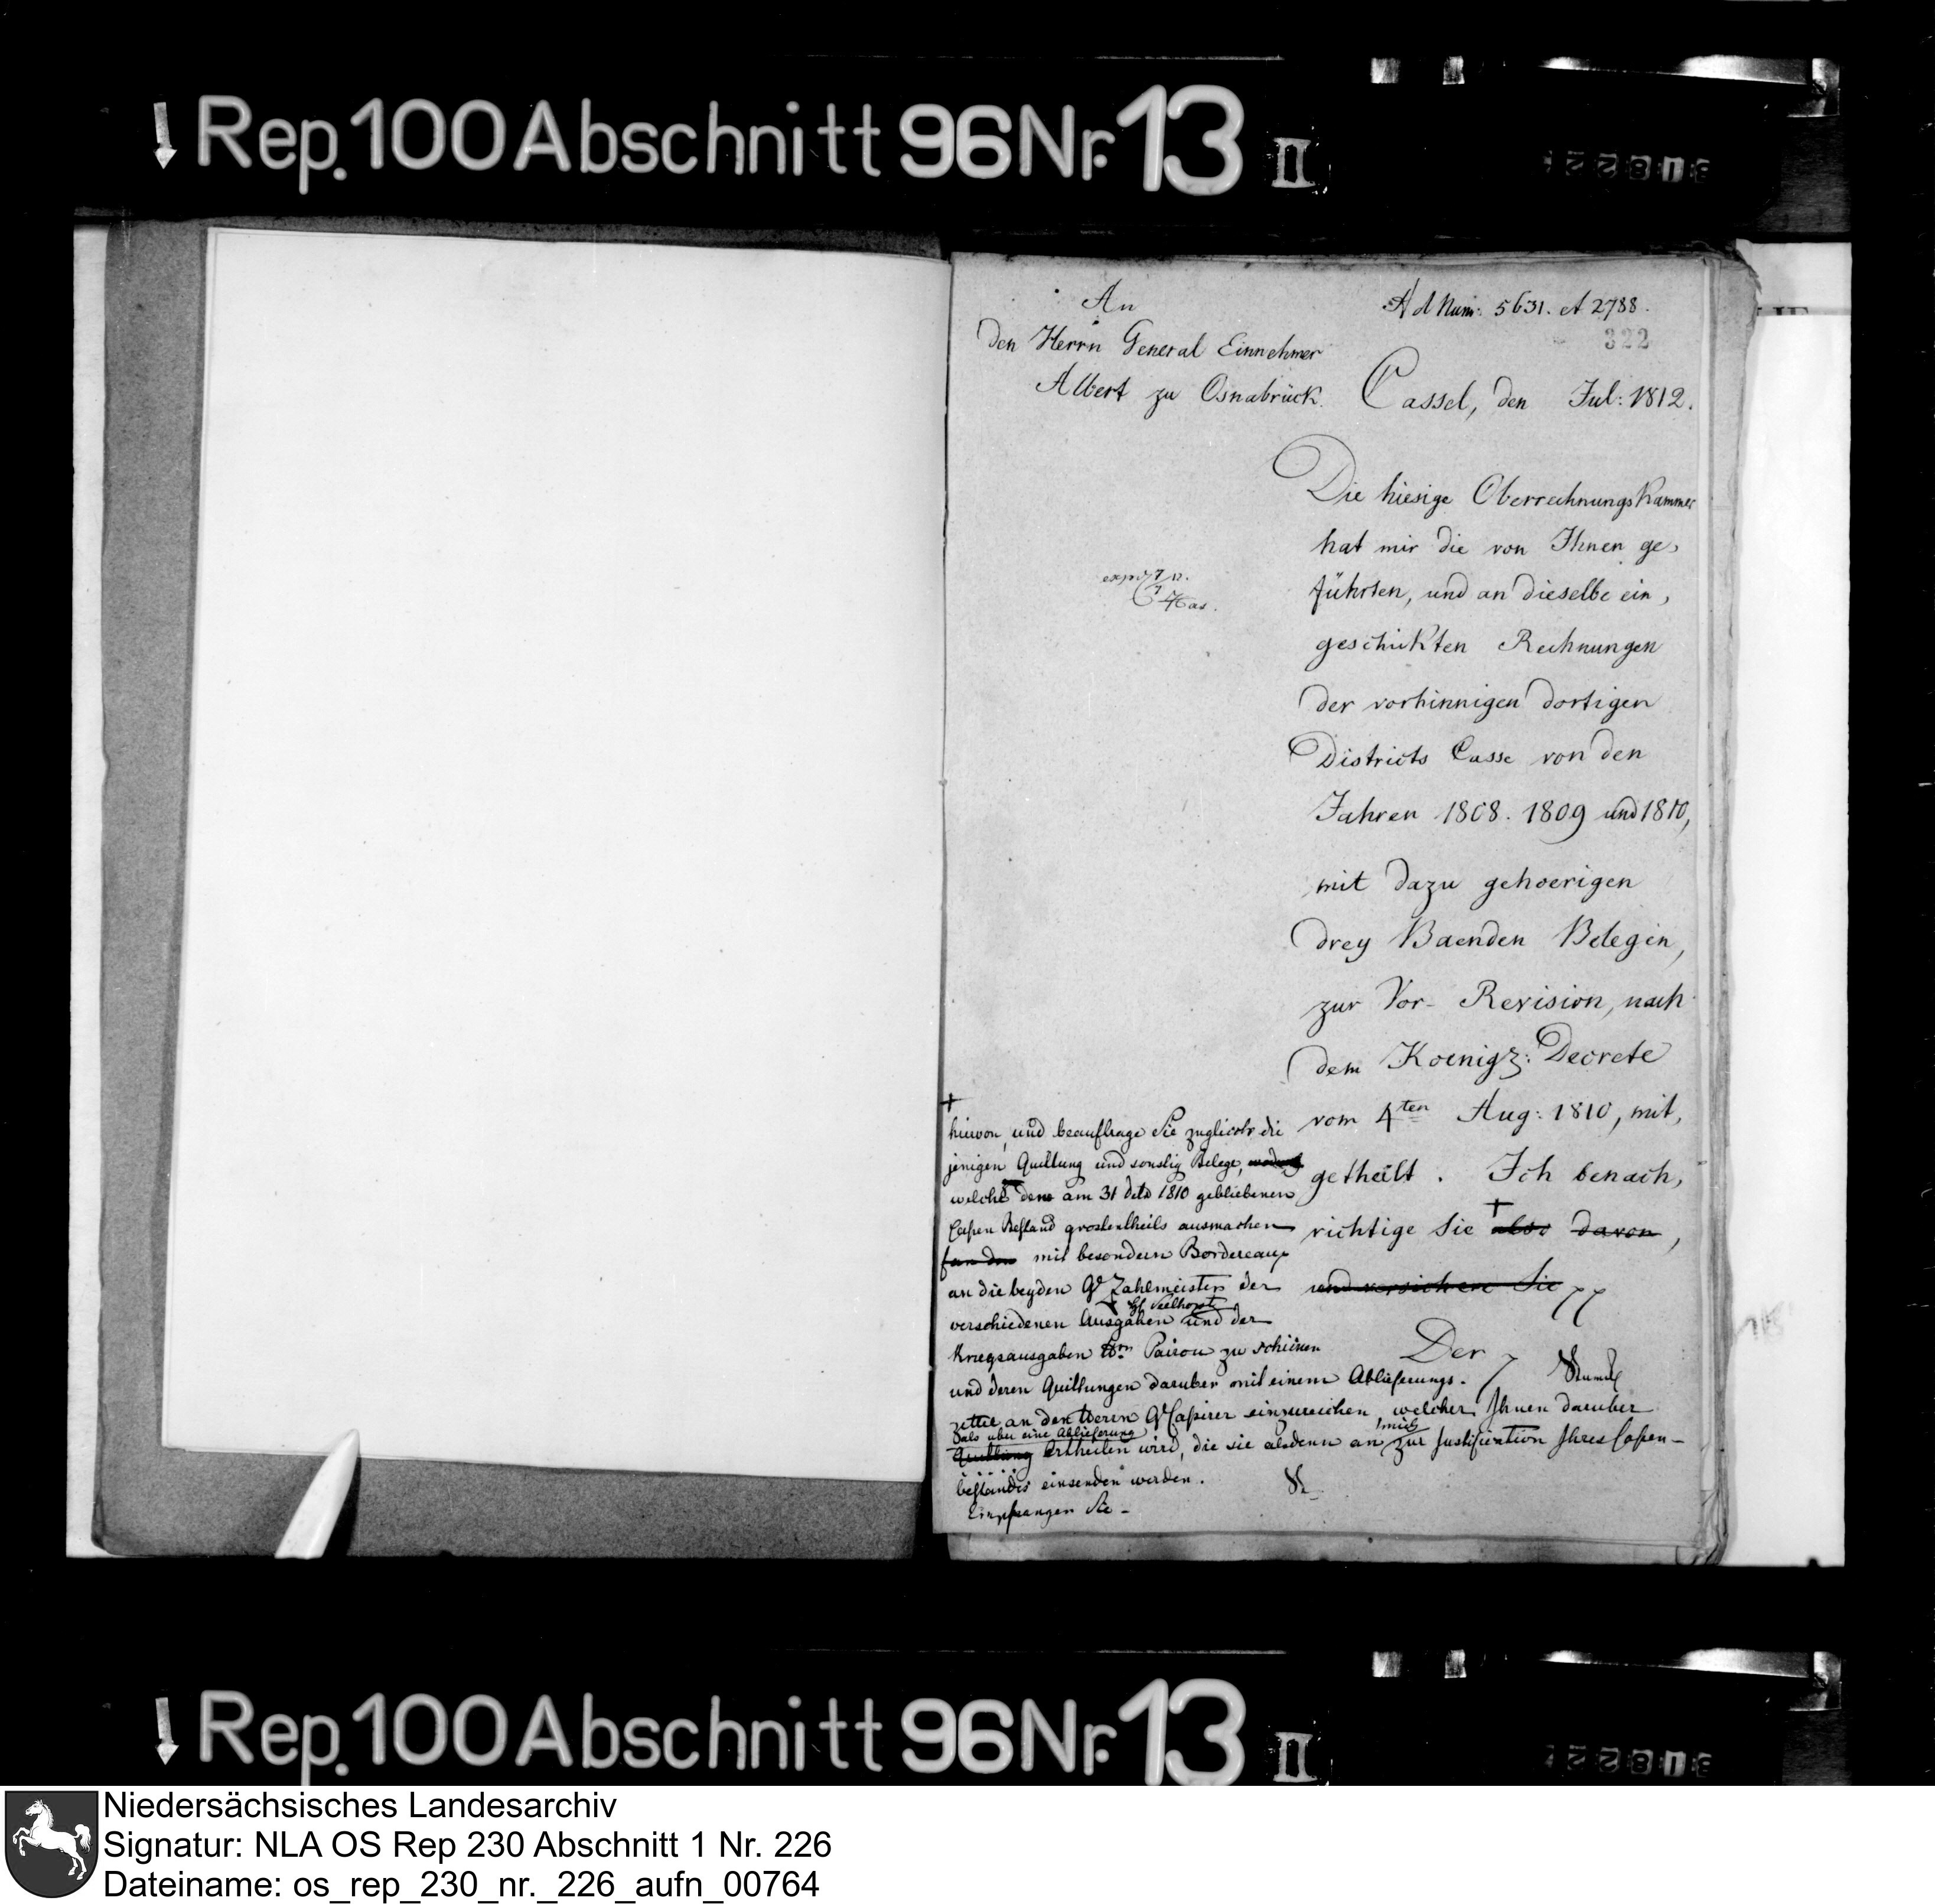 Rep. 100 Abschnitt 96 Nr. 13 II
An
den Herrn General Einnehmer
Albert zu Osnabrück.
Ad Num: 5631. et 2788.
322
Cassel, den Jul: 1812.
Die hiesige Oberrechnungs Kammer
hat mir die von Ihnen ge,
führten, und an dieselbe ein,
geschikten Rechnungen
der vorhinnigen dortigen
Districts Casse von den
Jahren 1808. 1809 und 1810,
mit dazu gehoerigen
drey Baenden Belegen,
zur Vor- Revision, nach
dem Koenigl: Decrete
vom 4ten Aug: 1810, mit,
getheilt. Ich benach,
richtige Sie also davon,
und versichere Sie
Der
hievon, und beauftrage Sie zugleich die
jenigen Quittung und sonstig Belege,
welche den am 31 1810 gebliebenen
Cassen Bestand grostentheils ausmachen
mit besondern Bordereaux
an die beyden Zahlmeister der
verschiedenen Ausgaben und der
Kriegsausgaben zu
und deren Quittungen daruber mit einem Ablieferungs-
zettel an den Herrn einzureichen, welcher Ihnen daruber
als uber eine Ablieferung
Quittung ertheilen wird, die sie alsdenn an mich zur Justification Ihres Cassen-
bestandes einsenden werden.
Empfangen Sie -
Rep. 100 Abschnitt 96 Nr. 13 II
Niedersächsisches Landesarchiv
Signatur: NLA OS Rep 230 Abschnitt 1 Nr. 226
Dateiname: os_rep_230_nr._226_aufn_00764